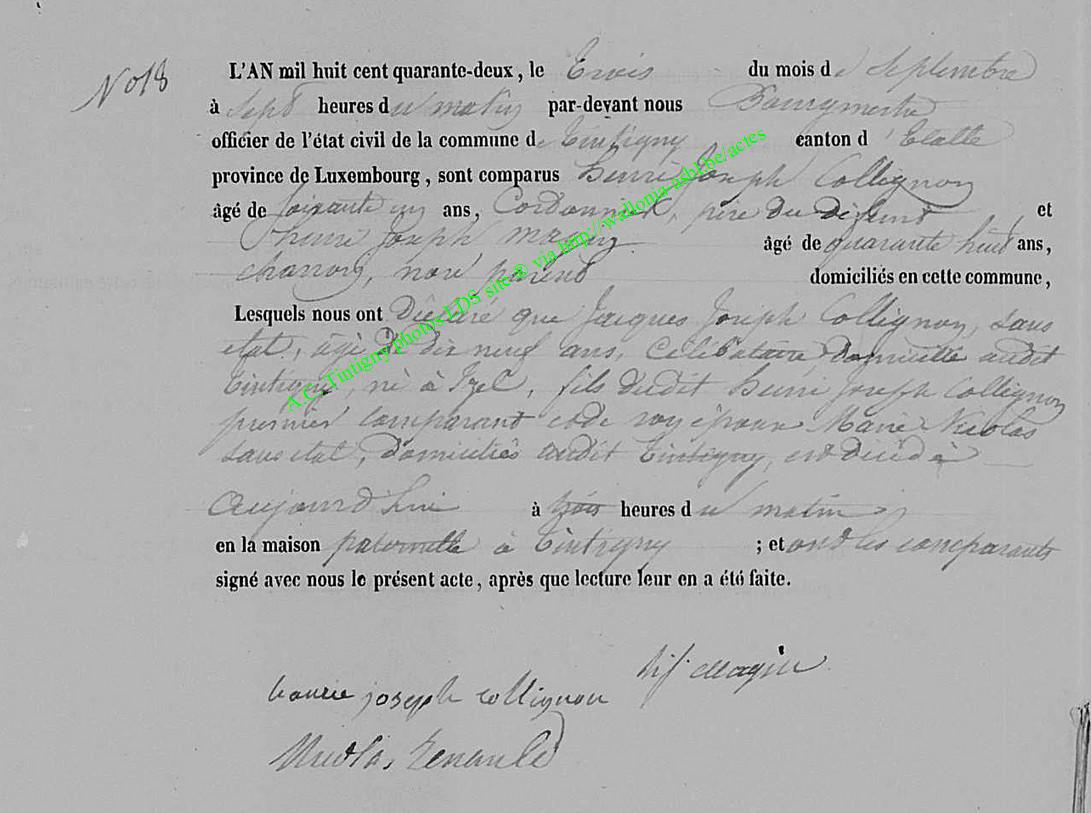 N° 18
L'AN mil huit cent quarante-deux, le trois du mois de Septembre
à sept heures du matin par-devant nous Bourgmestre
officier de l'état civil de la commune de Tintigny canton d'Etalle
province de Luxembourg, sont comparus henri Joseph Collignon
âgé de soixante un ans, Cordonnier, père du défunt et
henri Joseph magin âgé de quarante huit ans,
charron, non parent domiciliés en cette commune,
Lesquels nous ont Déclaré que Jacques Joseph Collignon, sans
etat, agé de dix neuf ans, Célibataire domicilié audit
Tintigny, né à Izel, fils dudit henri Joseph Collignon
premier comparant et de son épouse Marie Nicolas
sans etat, domiciliés audit Tintigny, est décédé
aujourd'hui à trois heures du matin
en la maison paternelle à Tintigny ; et ont les comparants
signé avec nous le présent acte, après que lecture leur en a été faite.
hj magin
henrie joseph collignon
Nicolas
A.C. Tintigny photos LDS site® via http://wallonia-asbl.be/actes